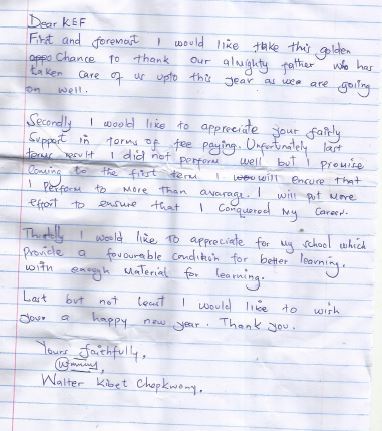 Dear KEF
First and foremost I would like take this golden
Chance to thank our almighty father who has
taken care of us upto this year as we are going
on well.
Secondly I would like to appreciate your fairly
support in terms of fee paying. Unfortunately last
terms result I did not perform well but I promise
coming to the first term I will encure that
I perform to more than avarage. I will put more
effort to ensure that I conquored my career.
Thirdly I would like to appreciate for my school which
provide a favourable condition for better learning.
with enough material for learning.
Last but not least I would like to wish
you a happy new year. Thank you.
Yours faithfully,
Walter Kibet Chepkwony.